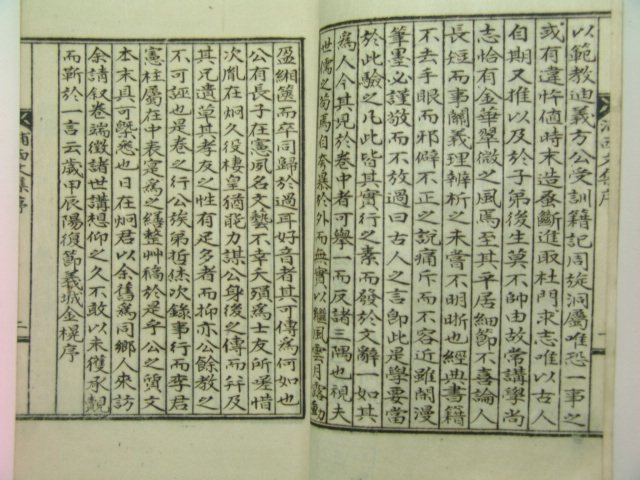 以範教迪義方公受訓籍記周旋洞屬唯恐一事之
或有違忤値時末造蚤斷進取杜門求志唯以古人
自期又推以及於子弟後生莫不帥由故常講學尚
志恰有金華翠微之風焉至其平居細節不喜論人
長短而事關義理辨析之未嘗不明晣也經典書籍
不去手眼而邪僻不正之說痛斥而不容近雖閒漫
筆墨必謹敬而不放過曰古人之言卽此是學要當
於此驗之凡此皆其實行之素而發於文辭一如其
爲人今其見於卷中者可擧一而反諸三隅也視夫
世儒之荀焉自夸暴於外而無實以繼風雲月露動
盈緗篋而卒同歸於過耳好音者其可傳爲何如也
公有長子在憲夙名文藝不幸夭殞爲士友所嗟惜
次胤在炯久役棲皇猶能力謀公身後之傳而弁及
其兄遺草其孝友之性有足多者而抑亦公餘教之
不可誣也是卷之行公族弟哲洙次錄事行而李君
憲柱屬在中表寔爲之繕整艸稿於是乎公之質文
本末具可槩悉也日在炯君以余舊爲同鄉人來訪
余請叙卷端徵諸世講想仰之久不敢以未獲承覿
而靳於一言云歲甲辰陽復節義城金榥序
文集序
二